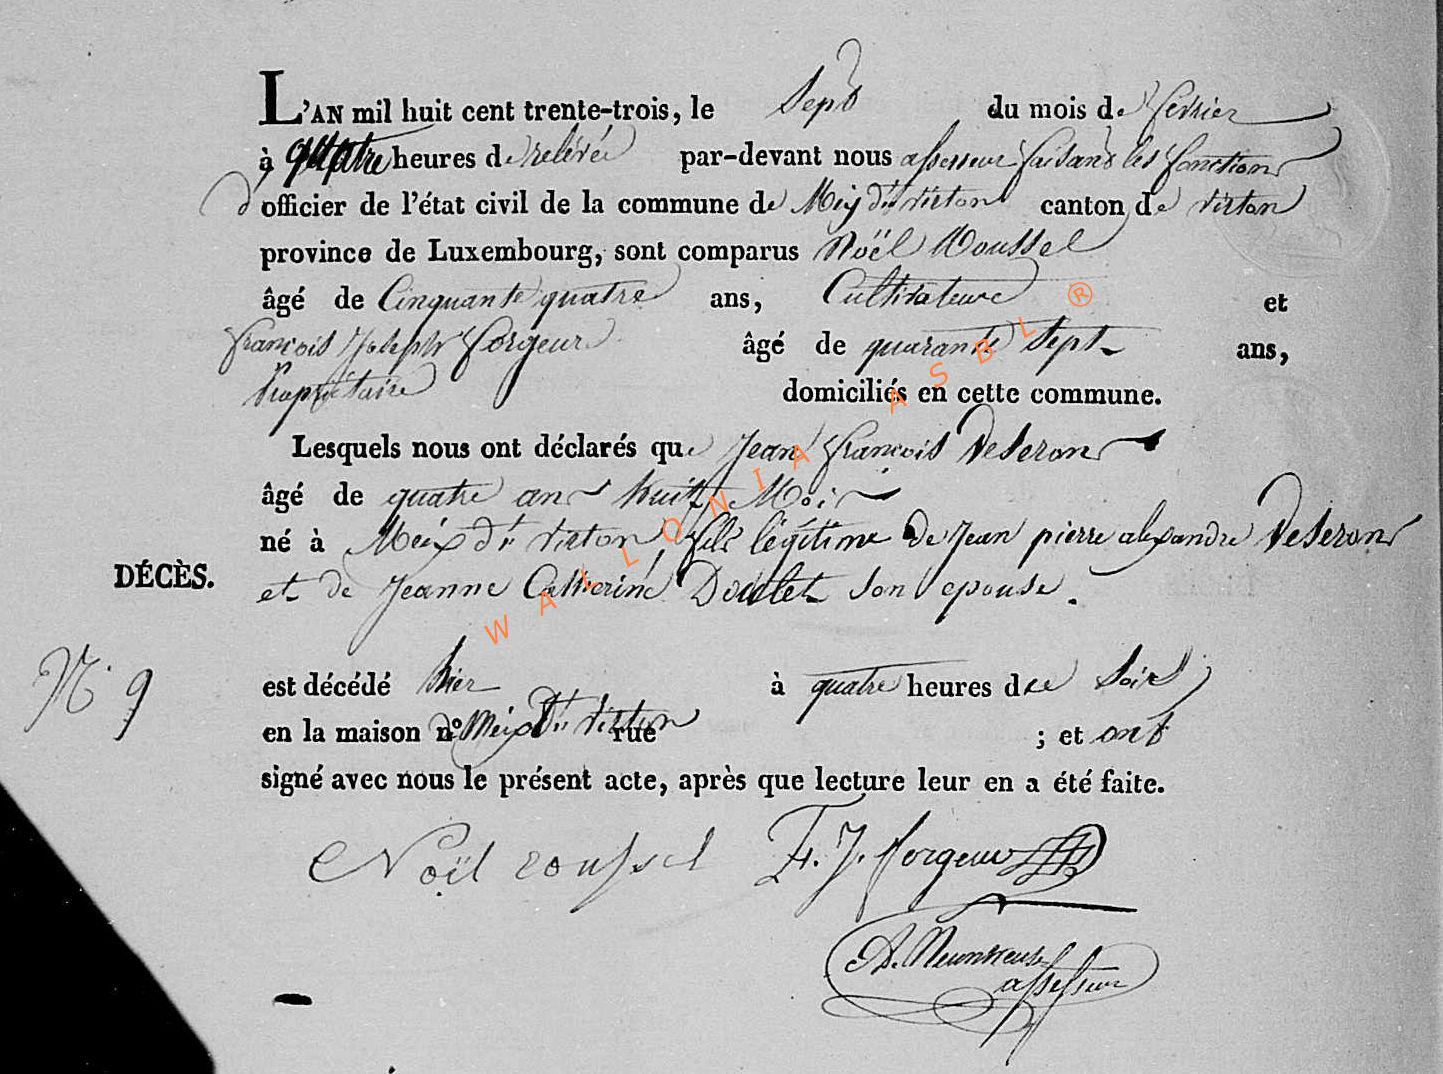 L'AN mil huit cent trente-trois, le Sept du mois de fevrier
à quatre heures de relevée par-devant nous assesseur faisant les fonctions
d'officier de l'état civil de la commune de Meix dt virton canton de virton
province de Luxembourg, sont comparus Noël Roussel
âgé de Cinquante quatre ans, Cultivateure et
françois Joseph forgeur âgé de quarante Sept ans,
Propriétaire domiciliés en cette commune.
Lesquels nous ont déclarés que Jean françois Deseron
âgé de quatre ans huit Mois
né à Meix dt virton, fils légitime de Jean pierre alexandre Deseron
DÉCÈS.
et de Jeanne Catherine Doulet son epouse.
N° 9
est décédé hier à quatre heures de Soir
en la maison n° Meix Dt virton rue ; et ont
signé avec nous le présent acte, après que lecture leur en a été faite.
Noël roussel F. J. forgeur
assesseur
WALLONIA ASBL ®